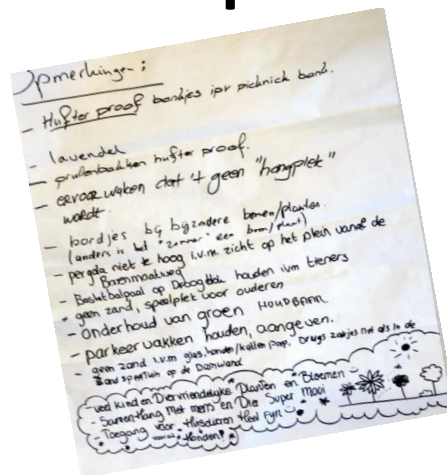 Opmerkingen:
- Hufter proof bankjes ipv picknick bank.
- lavendel
- prullenbakken hufter proof.
- ervoor waken dat 't geen "hangplek"
wordt.
- bordjes bij byzondere bomen/planten
(anders is het "zomaar" een boom/plant)
- pergola niet te hoog i.v.m. zicht op het plein vanaf de
- Basketbalpaal op houden ivm tieners
- geen zand, speelplek voor ouderen
- Onderhoud van groen HOUDBAAR
- parkeervakken houden, aangeven.
- geen zand i.v.m. glas, honden/katten poep, Drugs zakjes net als in de
zand speeltuin op de Damwand
veel kind en Diervriendelijke Planten en Bloemen
- Samenhang Met mens en Dier Super Mooi
- Toegang voor Huisdieren Heel Fijn
vooral Honden!